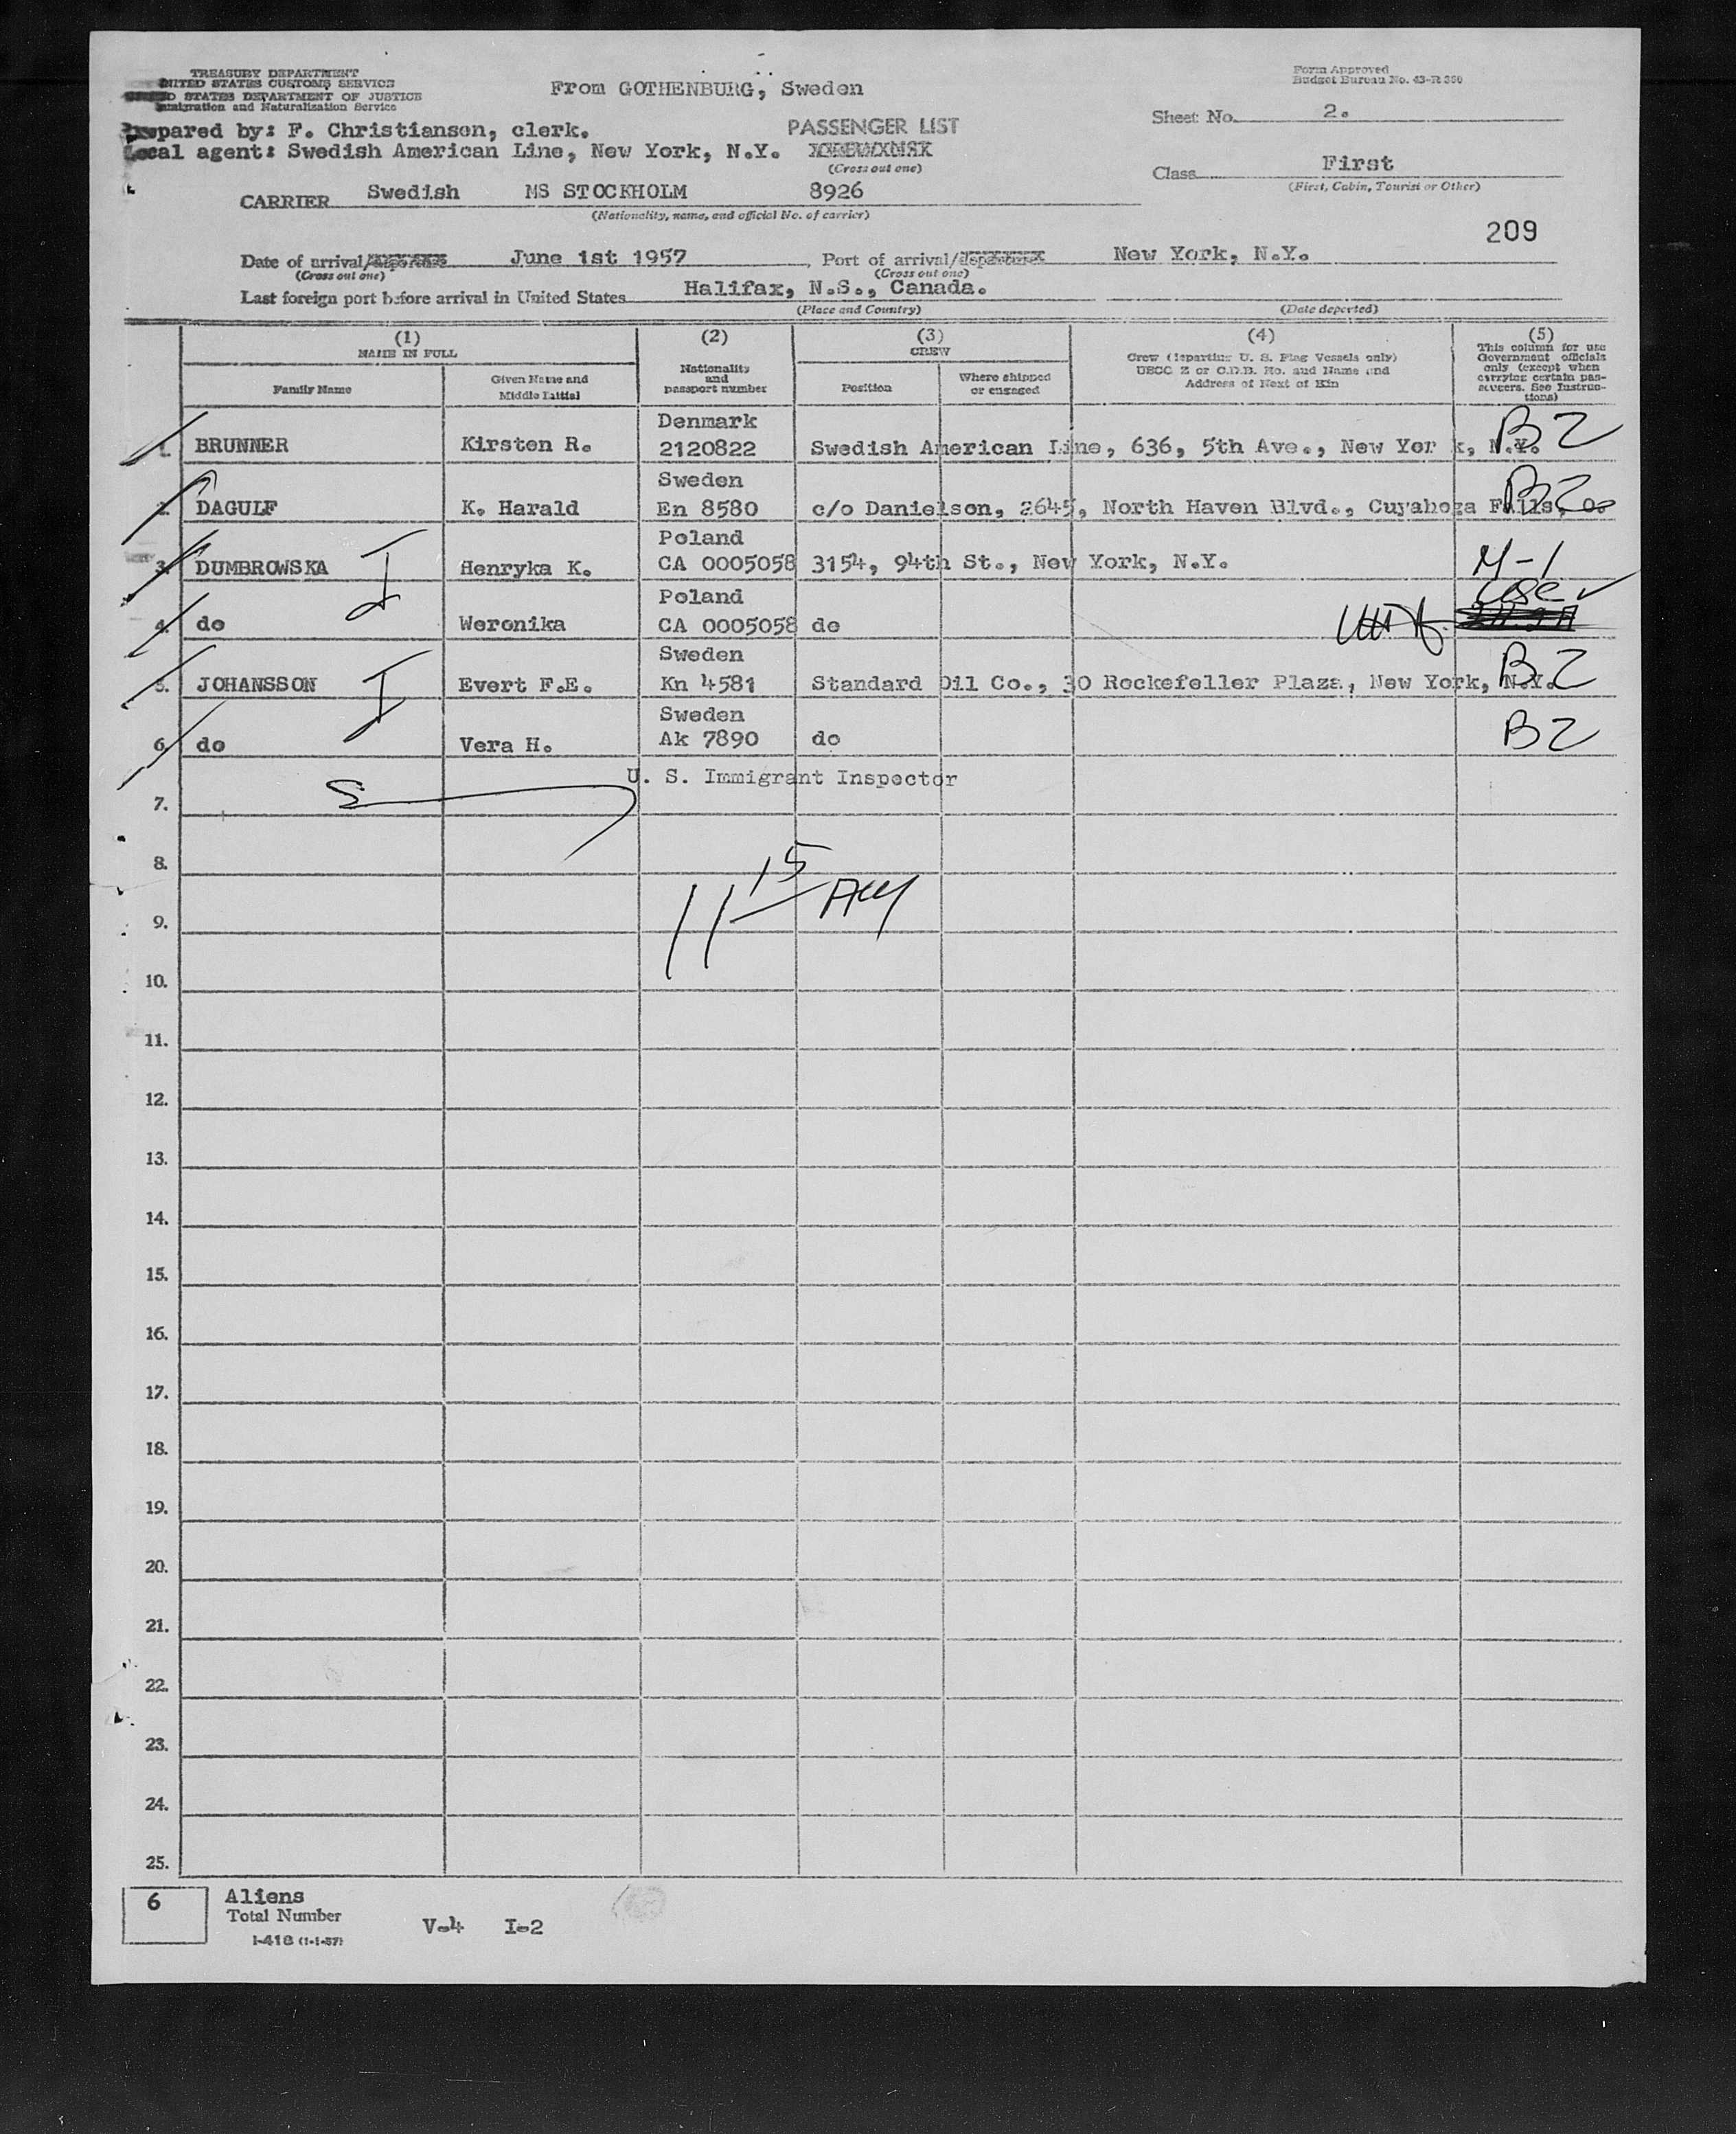 TREASURY DEPARTMENT
UNITED STATES CUSTOMS SERVICE
STATES DEPARTMENT OF JUSTICE
Immigration and Naturalization Service
From GOTHENBURG, Sweden
Form Approved
Budget Bureau No. 43-R 350
Prepared by: F. Christianson, clerk.
PASSENGER LIST
Sheet No. 2.
Local agent: Swedish American Line, New York, N.Y.
(Cross out one)
Class First
(First, Cabin, Tourist or Other)
CARRIER Swedish MS STOCKHOLM 8926
(Nationality, name, and official No. of carrier)
209
Date of arrival/ June 1st 1957, Port of arrival/departure New York, N.Y.
(Cross out one) (Cross out one)
Last foreign port before arrival in United States Halifax, N.S., Canada.
(Place and Country) (Date departed)
(1) (2) (3) (4) (5)
NAME IN FULL
Family Name
Given Name and Middle Initial
Nationality and passport number
CREW
Position
Where shipped or engaged
Crew (departing U. S. Flag Vessels only)
USCG Z or C.D.B. No. and Name and
Address of Next of Kin
This column for use
Government officials
only (except when
carrying certain pas-
sengers. See Instruc-
tions)
Denmark
1. BRUNNER Kirsten R. 2120822 Swedish American Line, 636, 5th Ave., New York, N.Y. B2
Sweden
2. DAGULF K. Harald En 8580 c/o Danielson, 2645, North Haven Blvd., Cuyahoga Falls, O. B2
Poland
3. DUMBROWSKA I Henryka K. CA 0005058 3154, 94th St., New York, N.Y. M-1
Poland
4. do Weronika CA 0005058 do
Sweden
5. JOHANSSON I Evert F.E. Kn 4581 Standard Oil Co., 30 Rockefeller Plaza, New York, N.Y. B2
Sweden
6. do Vera H. Ak 7890 do B2
U. S. Immigrant Inspector
7.
8.
11 15 AM
9.
10.
11.
12.
13.
14.
15.
16.
17.
18.
19.
20.
21.
22.
23.
24.
25.
6 Aliens
Total Number
V-4 I-2
I-418 (1-1-57)